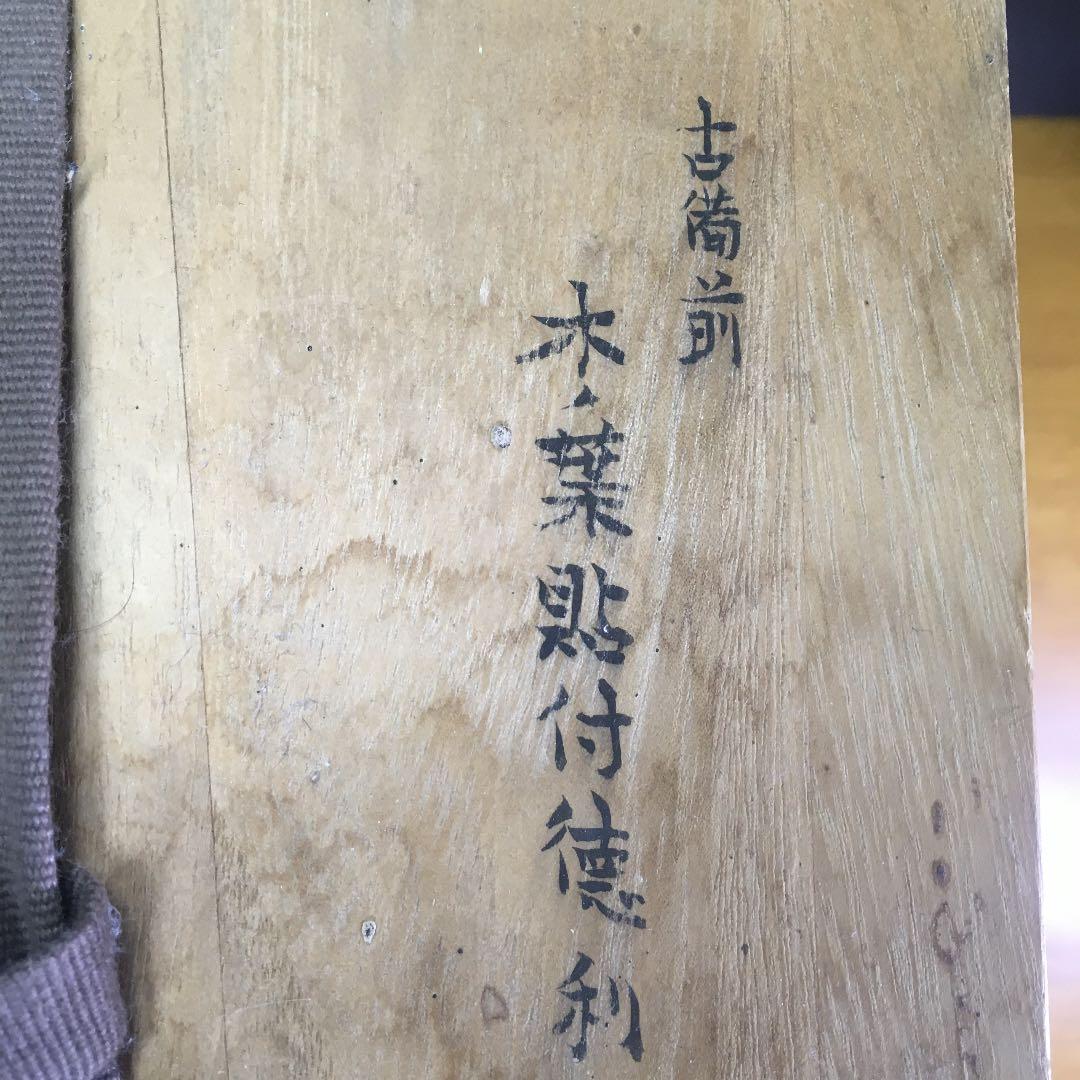 古備前
木ノ葉貼付徳利